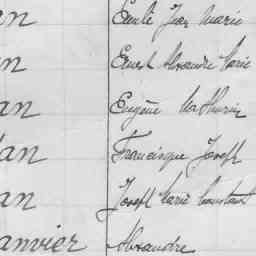 an Emile Jean Marie
an Ernest Alexandre Marie
an Eugène Mathurin
an Francisque Joseph
an Joseph Marie Constant
anvier Alexandre